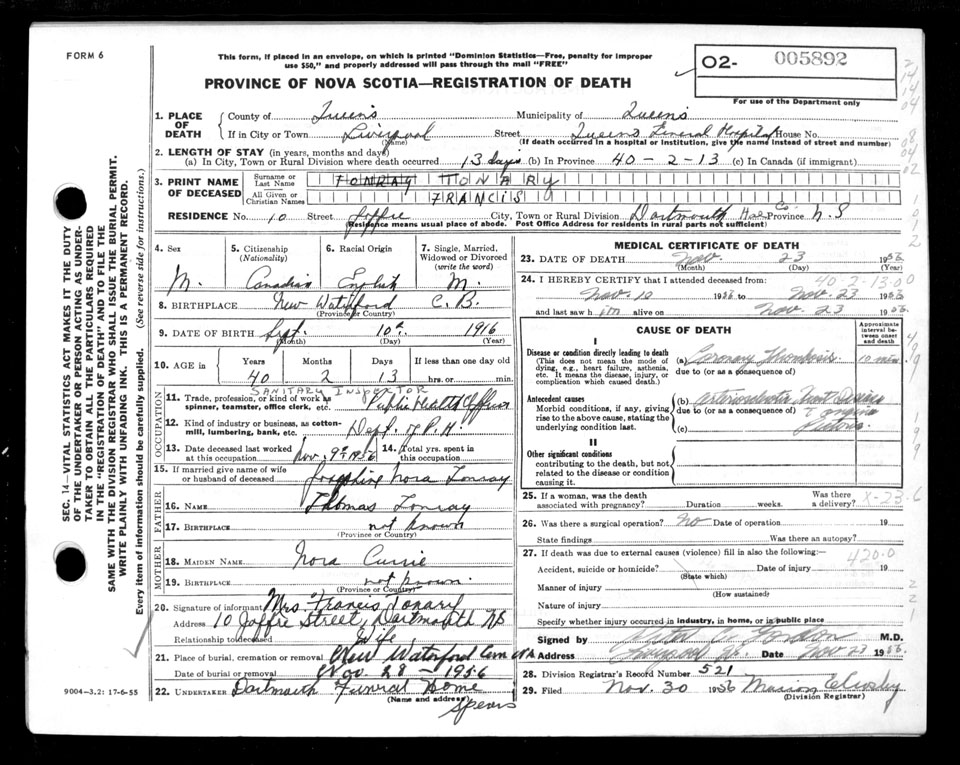 FORM 6
This form, if placed in an envelope, on which is printed "Dominion Statistics—Free, penalty for improper
use $50," and properly addressed will pass through the mail "FREE"
PROVINCE OF NOVA SCOTIA—REGISTRATION OF DEATH
O2- 005892
For use of the Department only
1. PLACE OF DEATH
County of Queens Municipality of Queens
If in City or Town Liverpool Street Queens General Hospital House No.
(Name) (If death occurred in a hospital or institution, give the name instead of street and number)
2. LENGTH OF STAY (in years, months and days)
(a) In City, Town or Rural Division where death occurred 13 days (b) In Province 40-2-13 (c) In Canada (if immigrant)
3. PRINT NAME OF DECEASED
Surname or Last Name TONRAY TONARY
All Given or Christian Names FRANCIS
RESIDENCE No. 10 Street Joffre City, Town or Rural Division Dartmouth Hfx Co. Province N.S
(Residence means usual place of abode. Post Office Address for residents in rural parts not sufficient)
4. Sex M.
5. Citizenship (Nationality) Canadian
6. Racial Origin English
7. Single, Married, Widowed or Divorced (write the word) M.
8. BIRTHPLACE New Waterford C.B.
(Province or Country)
9. DATE OF BIRTH Sept. 10th 1916
(Month) (Day) (Year)
10. AGE IN Years 40 Months 2 Days 13 If less than one day old hrs. or min.
OCCUPATION
SANITARY INSPECTOR
11. Trade, profession, or kind of work as spinner, teamster, office clerk, etc. Public Health Officer
12. Kind of industry or business, as cotton-mill, lumbering, bank, etc. Dept. of P.H.
13. Date deceased last worked at this occupation Nov. 9th 1956
14. Total yrs. spent in this occupation
15. If married give name of wife or husband of deceased Josephine Nora Tonray
FATHER
16. NAME Thomas Tonray
17. BIRTHPLACE not known
(Province or Country)
MOTHER
18. MAIDEN NAME Nora Currie
19. BIRTHPLACE not known.
(Province or Country)
20. Signature of informant Mrs. Francis Tonary
Address 10 Joffre Street, Dartmouth NS
Relationship to deceased Wife
21. Place of burial, cremation or removal New Waterford Cem NS
Date of burial or removal Nov. 28 - 1956
22. UNDERTAKER Dartmouth Funeral Home
(Name and address) Spears
9004-3.2: 17-6-55
SEC. 14—VITAL STATISTICS ACT MAKES IT THE DUTY
OF THE UNDERTAKER OR PERSON ACTING AS UNDER-
TAKER TO OBTAIN ALL THE PARTICULARS REQUIRED
IN THE "REGISTRATION OF DEATH" AND TO FILE THE
SAME WITH THE DIVISION REGISTRAR WHO SHALL ISSUE THE BURIAL PERMIT.
WRITE PLAINLY WITH UNFADING INK. THIS IS A PERMANENT RECORD.
Every item of information should be carefully supplied. (See reverse side for instructions.)
MEDICAL CERTIFICATE OF DEATH
23. DATE OF DEATH Nov. 23 1956
(Month) (Day) (Year)
40-2-13-00
24. I HEREBY CERTIFY that I attended deceased from:
Nov. 10 1956 to Nov. 23 1956
and last saw him alive on Nov. 23 1956
CAUSE OF DEATH
Approximate interval between onset and death
I
Disease or condition directly leading to death
(This does not mean the mode of dying, e.g., heart failure, asthenia, etc. It means the disease, injury, or complication which caused death.)
(a) Coronary Thrombosis 10 min.
due to (or as a consequence of)
Antecedent causes
Morbid conditions, if any, giving rise to the above cause, stating the underlying condition last.
(b) Arteriosclerotic Heart Disease
due to (or as a consequence of) Angina
(c) Pectoris
II
Other significant conditions
contributing to the death, but not related to the disease or condition causing it.
25. If a woman, was the death associated with pregnancy? Duration weeks. Was there a delivery?
X-23-6
26. Was there a surgical operation? No Date of operation 19
State findings Was there an autopsy?
27. If death was due to external causes (violence) fill in also the following:—
420.0
Accident, suicide or homicide? Date of injury 19
(State which)
Manner of injury
(How sustained)
Nature of injury
Specify whether injury occurred in industry, in home, or in public place
Signed by Gordon M.D.
Address Liverpool NS. Date Nov 23 1956
28. Division Registrar's Record Number 521
29. Filed Nov. 30 1956 Marion
(Division Registrar)